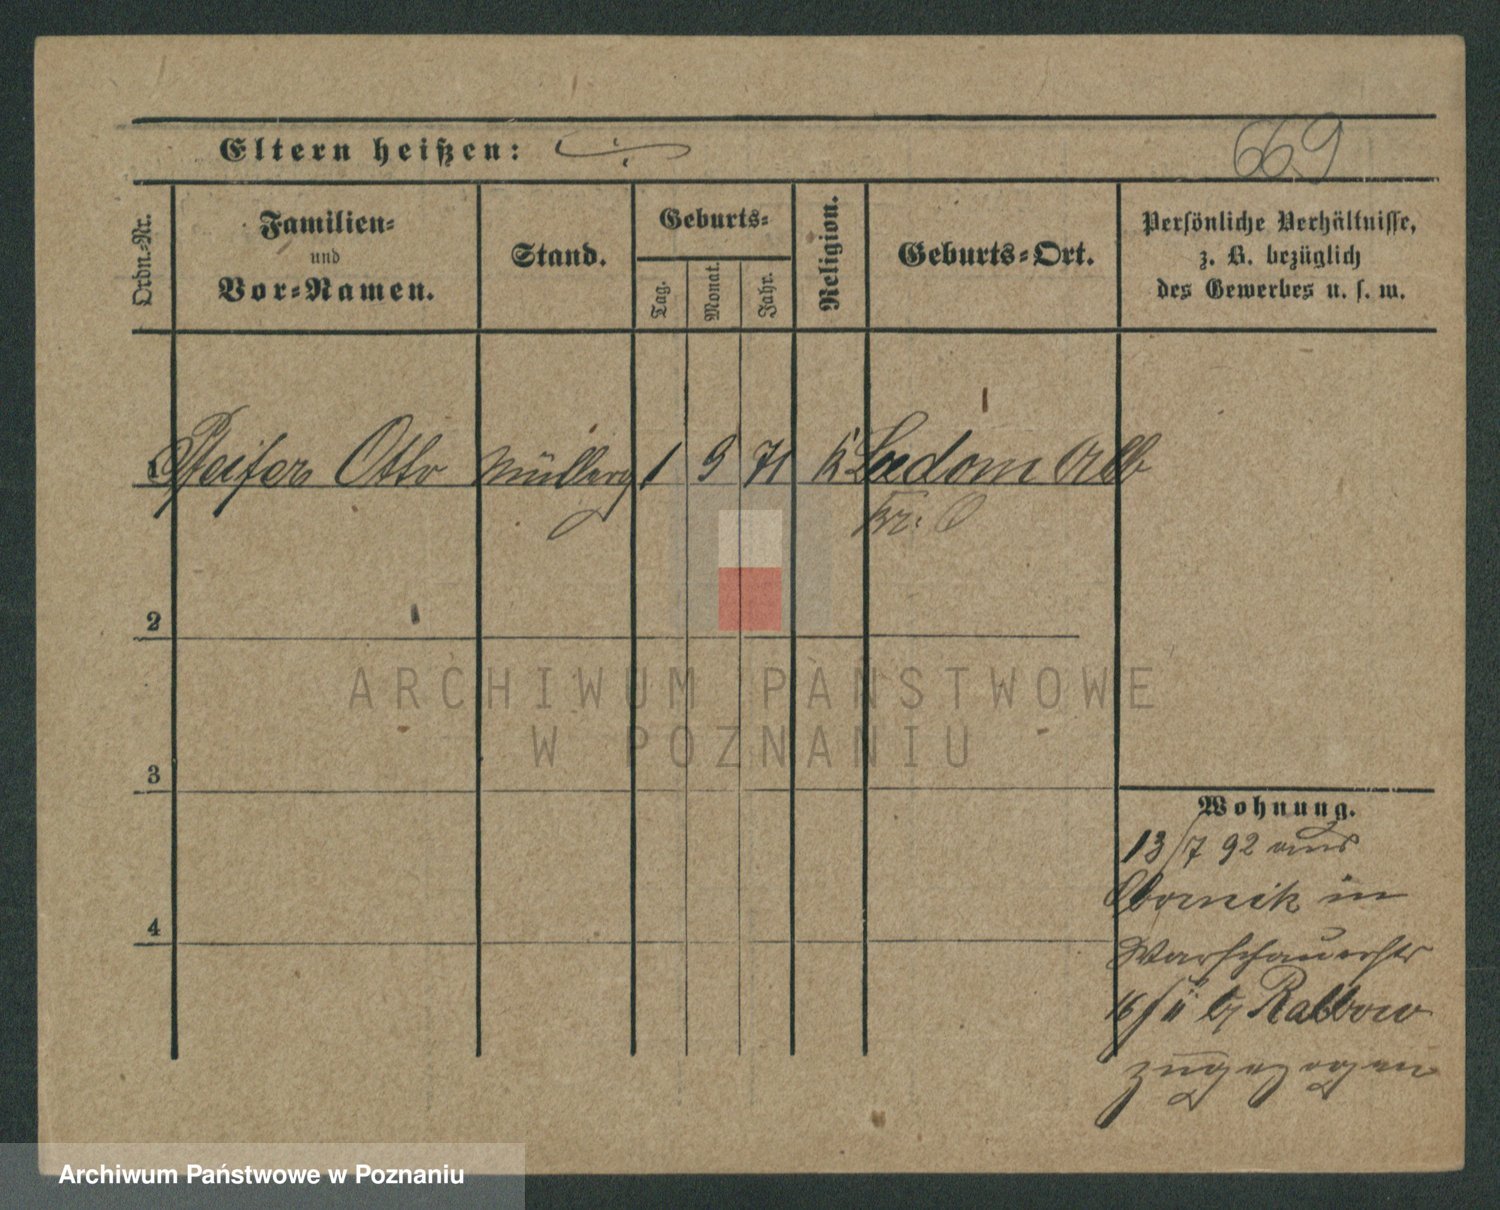 Eltern heißen:
669
Ordn.-Nr.
Familien-
und
Vor-Namen.
Stand.
Geburts-
Tag.
Monat.
Jahr.
Religion.
Geburts-Ort.
Persönliche Verhältnisse,
z. B. bezüglich
des Gewerbes u. s. w.
1 Pfeifer Otto Müllerg 1 9 71 k
Kr: O
2
ARCHIWUM PAŃSTWOWE
W POZNANIU
3
4
Wohnung.
13/7 92 aus
Obornik in
Warschauerstr
16/II
zugezogen
Archiwum Państwowe w Poznaniu